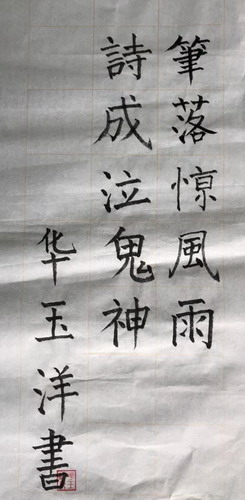 筆落惊風雨
詩成泣鬼神
华玉洋書